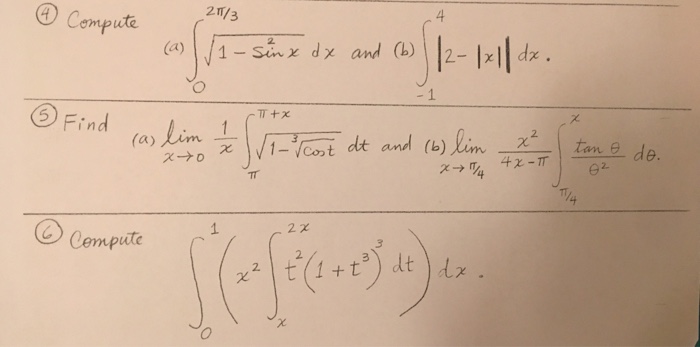 ④ Compute (a) ∫₀^{2π/3} √(1 − sin²x) dx and (b) ∫₋₁⁴ |2 − |x|| dx.
⑤ Find (a) lim_{x→0} 1/x ∫_π^{π+x} √(1 − ∛(cos t)) dt and (b) lim_{x→π/4} x²/(4x − π) ∫_{π/4}^x tan θ/θ² dθ.
⑥ Compute ∫₀¹ (x² ∫ₓ^{2x} t²(1 + t³)³ dt) dx.